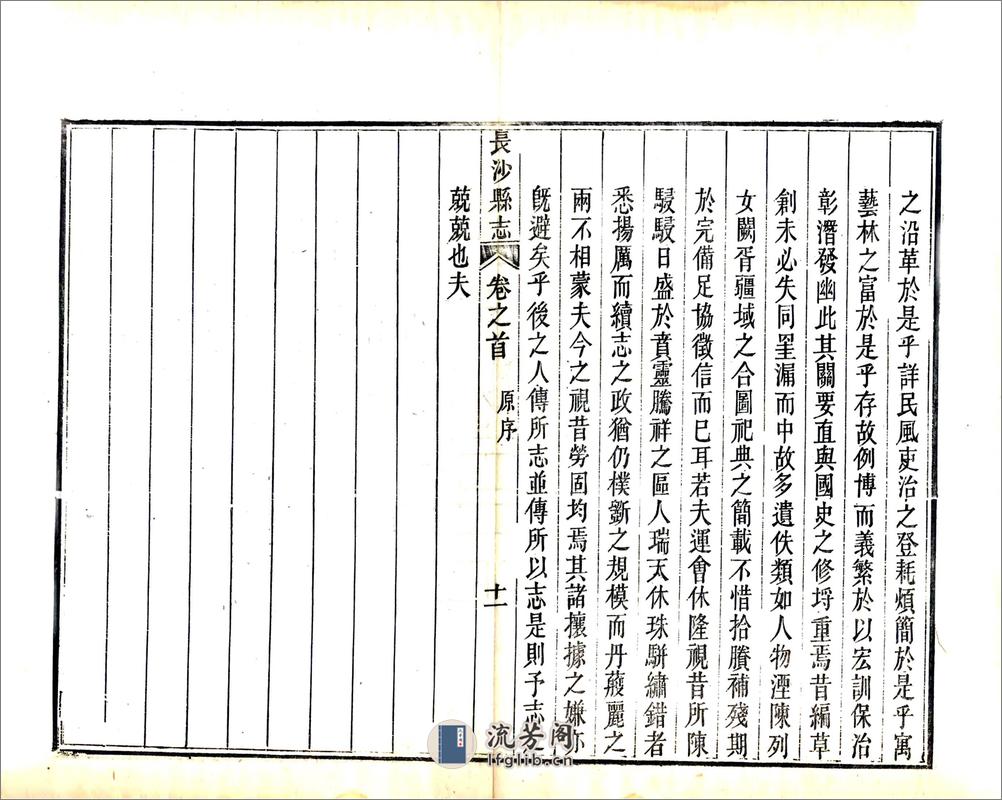 之沿革於是乎詳民風吏治之登耗煩簡於是乎寓
藝林之富於是乎存故例博而義繁於以宏訓保治
彰潛發幽此其關要直與國史之修埒重焉昔編草
創未必失同罣漏而中故多遺佚類如人物湮陳列
女闕胥疆域之合圖祀典之簡載不惜拾賸補殘期
於完備足協徵信而已耳若夫運會休隆視昔所陳
駸駸日盛於賁靈騰祥之區人瑞天休珠駢繡錯者
悉揚厲而續志之政猶仍樸斵之規模而丹雘麗之
兩不相蒙夫今之視昔勞固均焉其諸攘據之嫌亦
既避矣乎後之人傳所志並傳所以志是則予志之
兢兢也夫
長沙縣志 卷之首 原序 十一
流芳阁
lfglib.cn